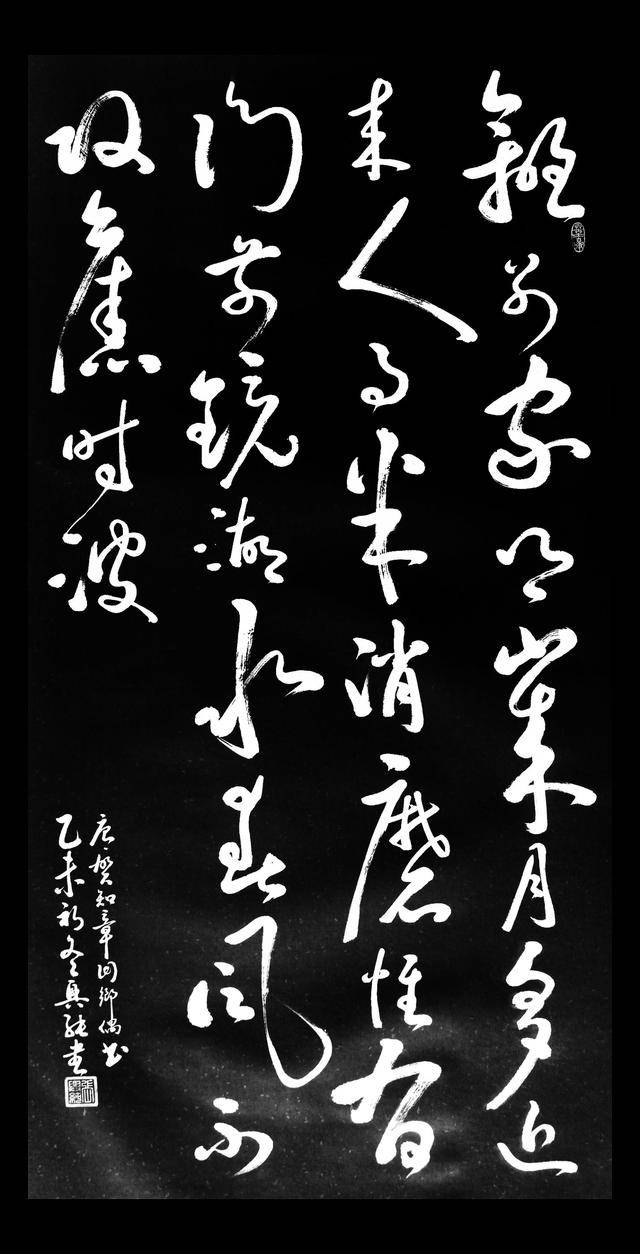 離別家鄉歲月多近
来人事半消磨惟有
门前鏡湖水春风不
改舊时波
唐賀知章回鄉偶书
乙未初冬書